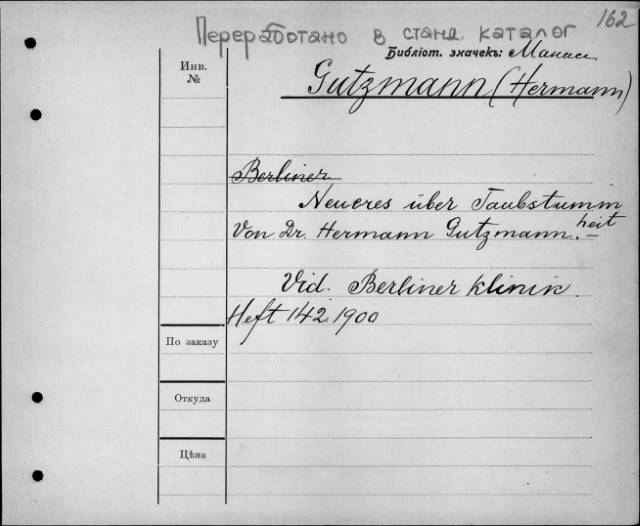 162
Переработано в станд. каталог
Библіот. значекъ:
Инв.
№
Gutzmann (Hermann)
Berliner
Neueres über Taubstumm
heit
Von Dr. Hermann Gutzmann.
Vid. Berliner Klinik.
Heft 142. 1900
По заказу
Откуда
Цѣна